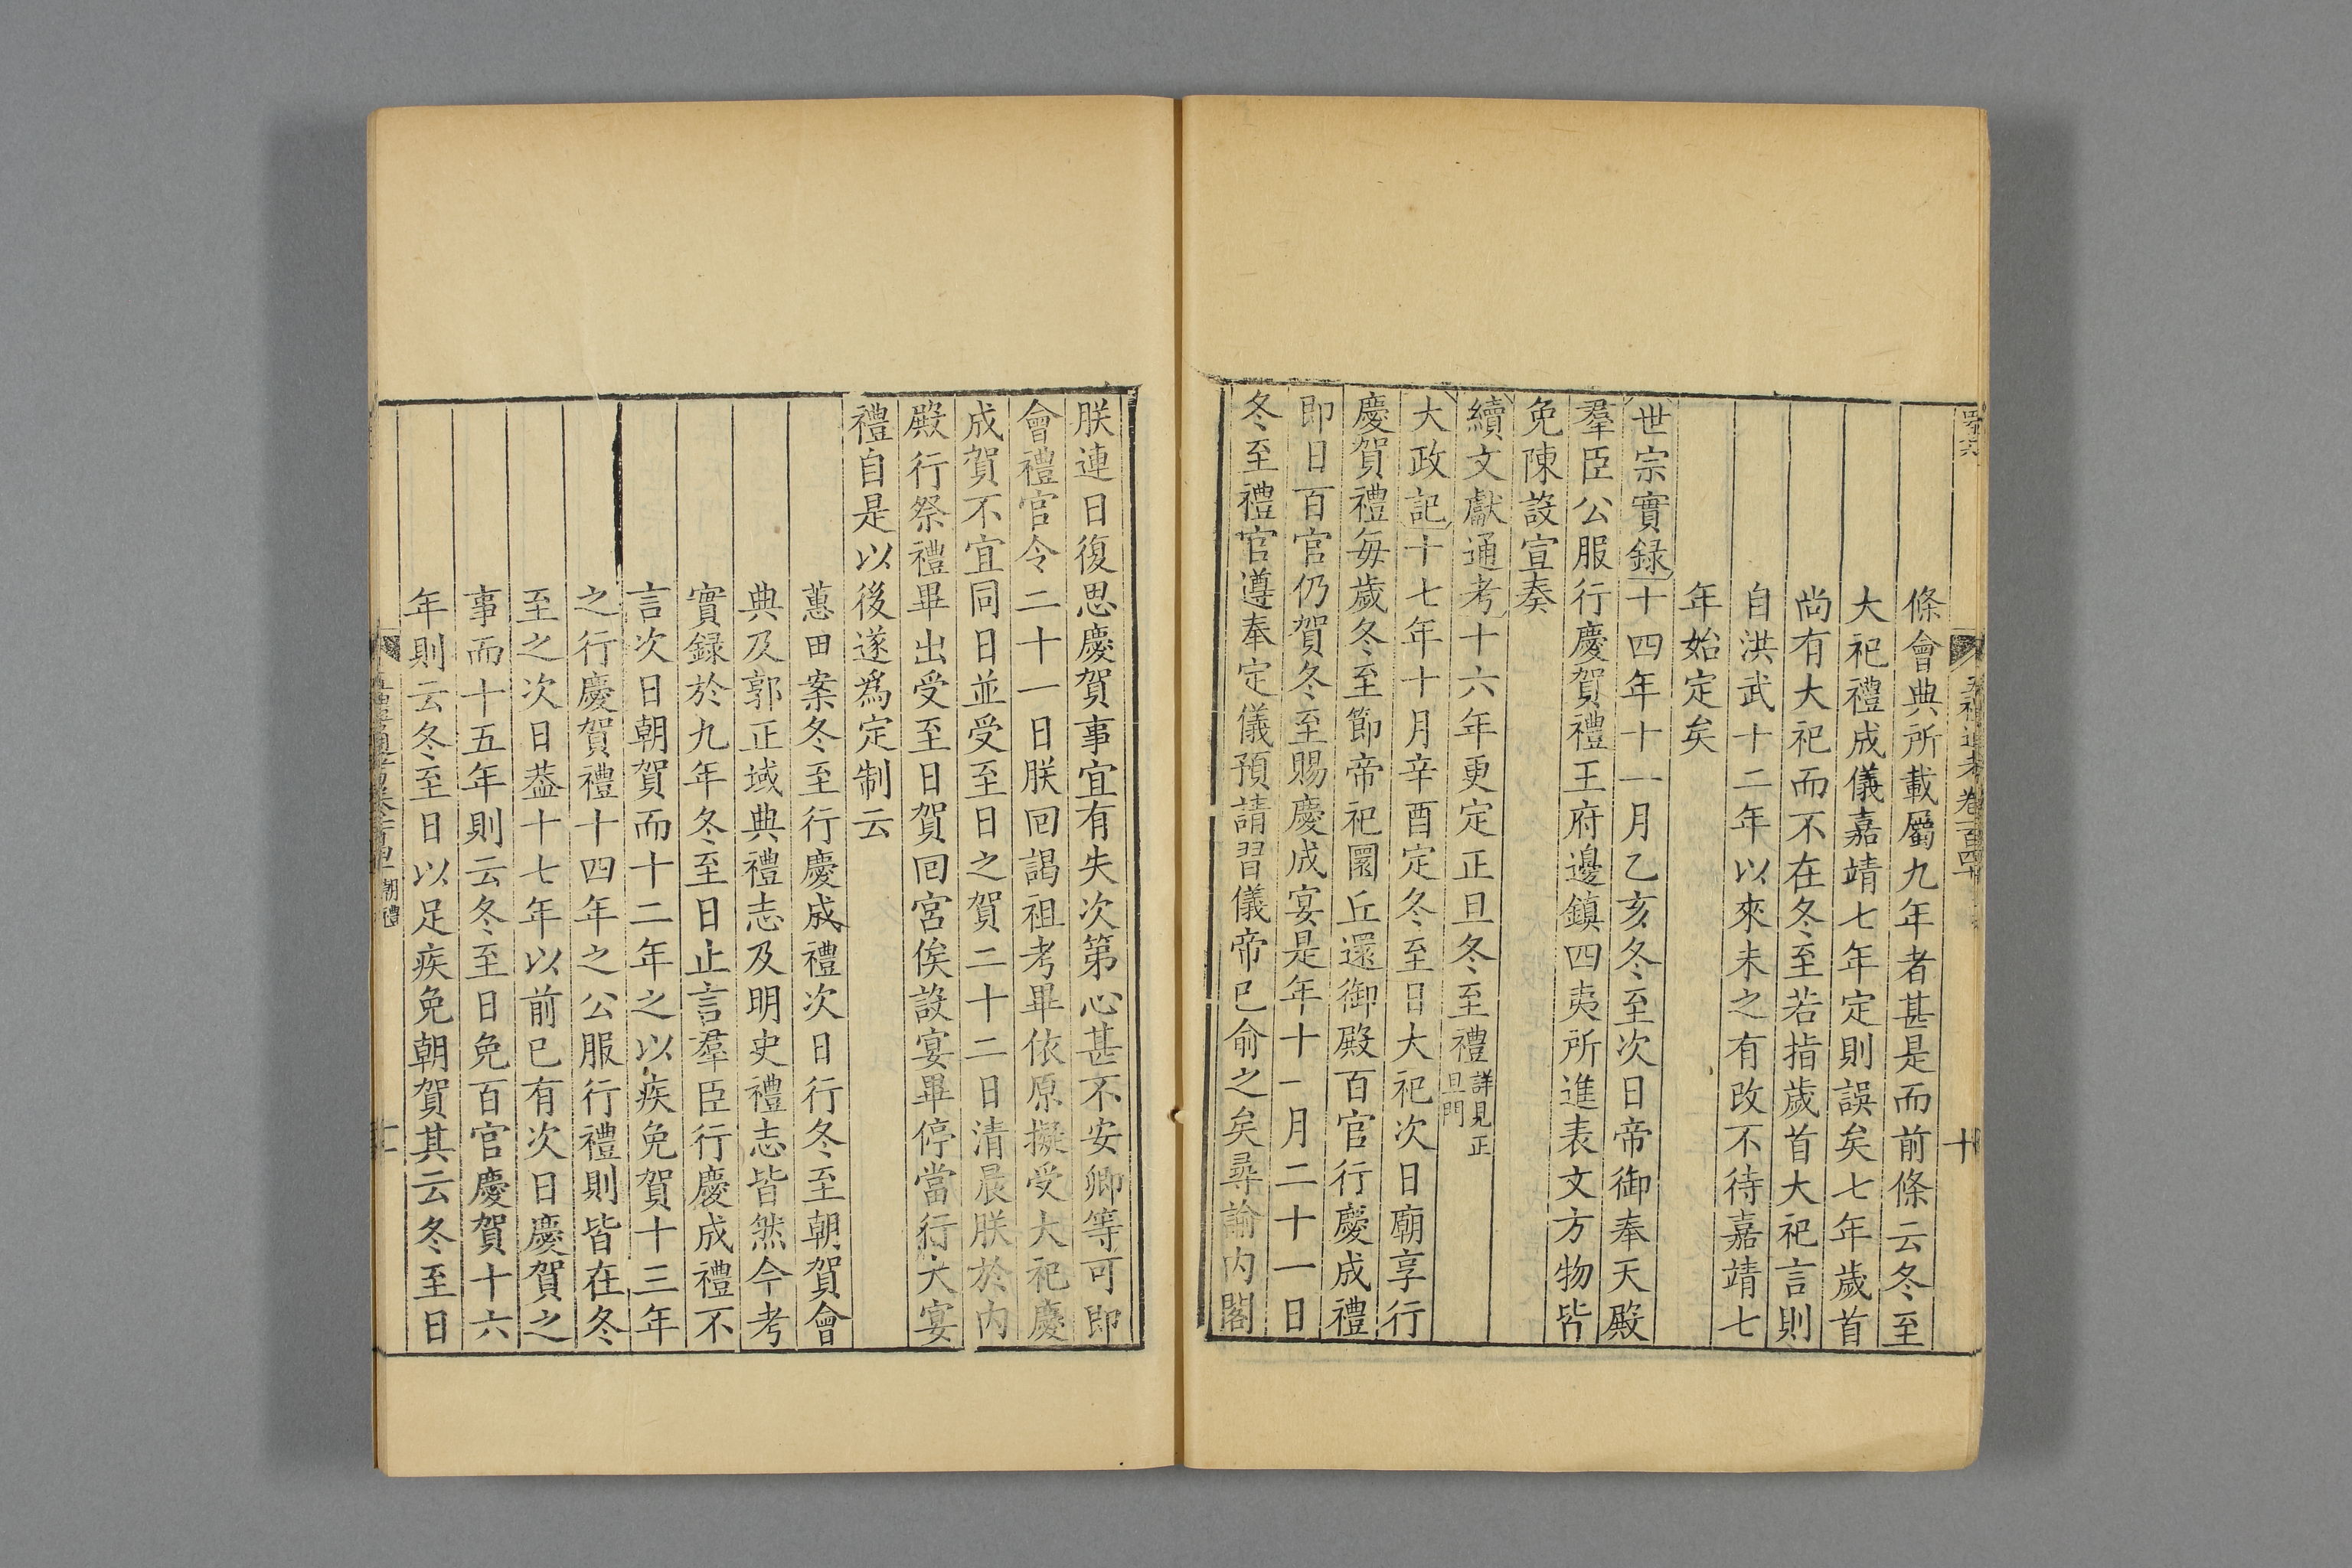 條會典所載屬九年者甚是而前條云冬至
大祀禮成儀嘉靖七年定則誤矣七年歲首
尚有大祀而不在冬至若指歲首大祀言則
自洪武十二年以來未之有改不待嘉靖七
年始定矣
世宗實録十四年十一月乙亥冬至次日帝御奉天殿
羣臣公服行慶賀禮王府邊鎮四夷所進表文方物皆
免陳設宣奏
續文獻通考十六年更定正旦冬至禮詳見正旦門
大政記十七年十月辛酉定冬至日大祀次日廟享行
慶賀禮每歲冬至節帝祀圜丘還御殿百官行慶成禮
即日百官仍賀冬至賜慶成宴是年十一月二十一日
冬至禮官遵奉定儀預請習儀帝已俞之矣尋諭内閣
朕連日復思慶賀事宜有失次第心甚不安卿等可即
會禮官令二十一日朕回謁祖考畢依原擬受大祀慶
成賀不宜同日並受至日之賀二十二日清晨朕於内
殿行祭禮畢出受至日賀回宮俟設宴畢停當行大宴
禮自是以後遂爲定制云
蕙田案冬至行慶成禮次日行冬至朝賀會
典及郭正域典禮志及明史禮志皆然今考
實録於九年冬至日止言羣臣行慶成禮不
言次日朝賀而十二年之以疾免賀十三年
之行慶賀禮十四年之公服行禮則皆在冬
至之次日葢十七年以前已有次日慶賀之
事而十五年則云冬至日免百官慶賀十六
年則云冬至日以足疾免朝賀其云冬至日